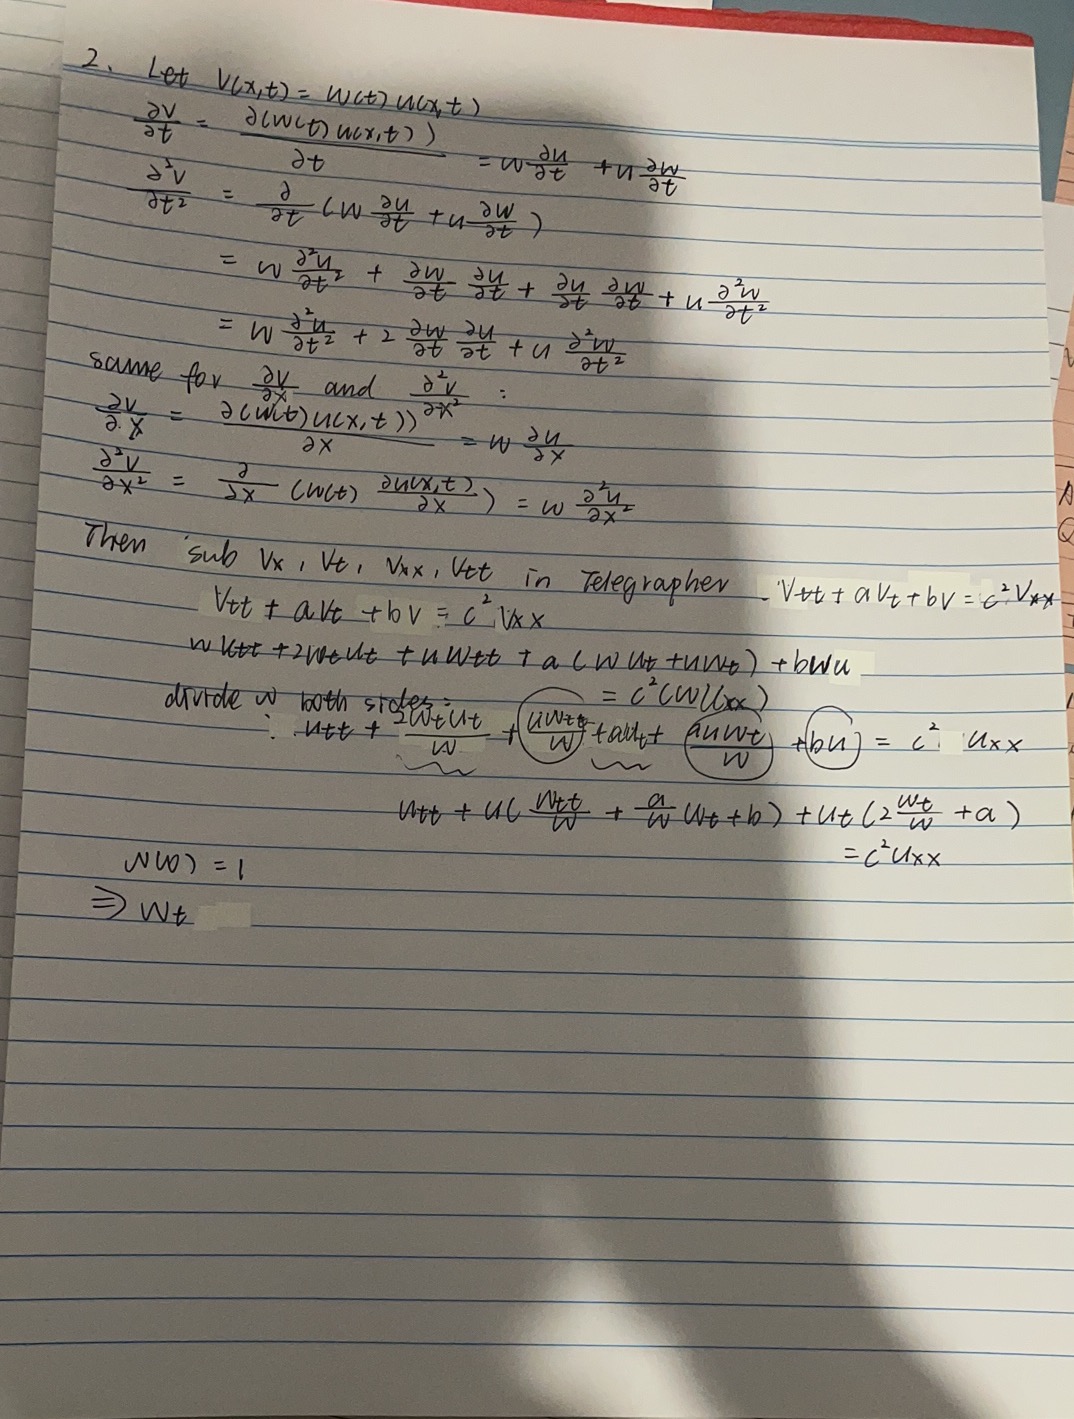 2. Let V(x,t) = W(t) u(x,t)
∂V/∂t = ∂(W(t) u(x,t))/∂t = w ∂u/∂t + u ∂w/∂t
∂²V/∂t² = ∂/∂t (W ∂u/∂t + u ∂W/∂t)
= w ∂²u/∂t² + ∂w/∂t ∂u/∂t + ∂u/∂t ∂w/∂t + u ∂²w/∂t²
= w ∂²u/∂t² + 2 ∂w/∂t ∂u/∂t + u ∂²w/∂t²
same for ∂V/∂x and ∂²V/∂x² :
∂V/∂x = ∂(W(t) u(x,t))/∂x = w ∂u/∂x
∂²V/∂x² = ∂/∂x (W(t) ∂u(x,t)/∂x) = w ∂²u/∂x²
Then sub Vx, Vt, Vxx, Vtt in Telegrapher. Vtt + aVt + bV = c² Vxx
Vtt + aVt + bV = c² Vxx
w utt + 2wt ut + u wtt + a (w ut + u wt) + bwu
= c² (w uxx)
divide w both sides:
: utt + 2wt ut/w + u wtt/w + aut + a u wt/w + bu = c² uxx
utt + u( wtt/w + a/w wt + b) + ut (2 wt/w + a)
= c² uxx
W(0) = 1
⇒ Wt